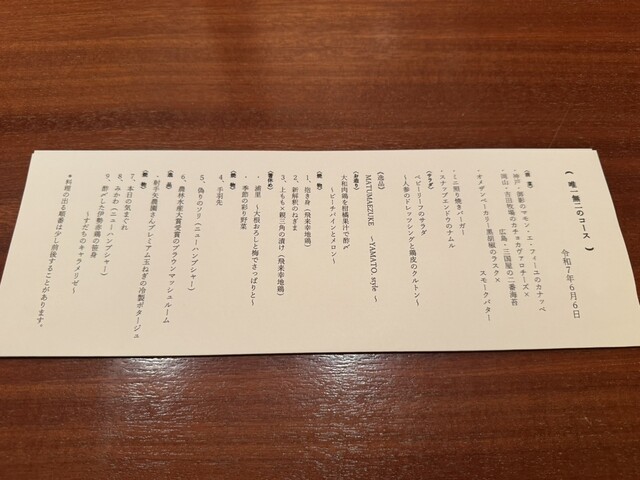 《 唯一無二のコース 》
令和7年6月6日
・神戸・御影のマモン・エ・フィーユのカナッペ
・岡山・吉田牧場のカチョカヴァロチーズ×
広島・三国屋の二番海苔
・オメザンベーカリー黒胡椒のラスク×
スモークバター
・ミニ照り焼きバーガー
・スナップエンドウのナムル
(サラダ)
ベビーリーフのサラダ
～人参のドレッシングと鶏皮のクルトン～
(逸品)
MATUMAEZUKE ～YAMATO. style ～
(お造り)
大和肉鶏を柑橘果汁で酢〆
～ピーチパインとメロン～
1、抱き身(飛来幸地鶏)
2、新解釈のねぎま
3、上もも×親三角の漬け(飛来幸地鶏)
(箸休め)
・浦里 ～大根おろしと梅でさっぱりと～
・季節の彩り野菜
4、手羽先
5、偽りのソリ(ニューハンプシャー)
6、農林水産大賞受賞のブラウンマッシュルーム
・射手矢農園さんプレミアム玉ねぎの冷製ポタージュ
7、本日の気まぐれ
8、みかわ(ニューハンプシャー)
9、酢〆した伊勢赤鶏の笹身
～すだちのキャラメリゼ～
＊料理の出る順番は少し前後することがあります。